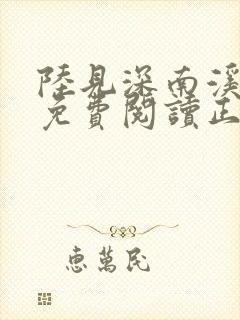 陸見深南溪
免費閱讀正
惠萬民